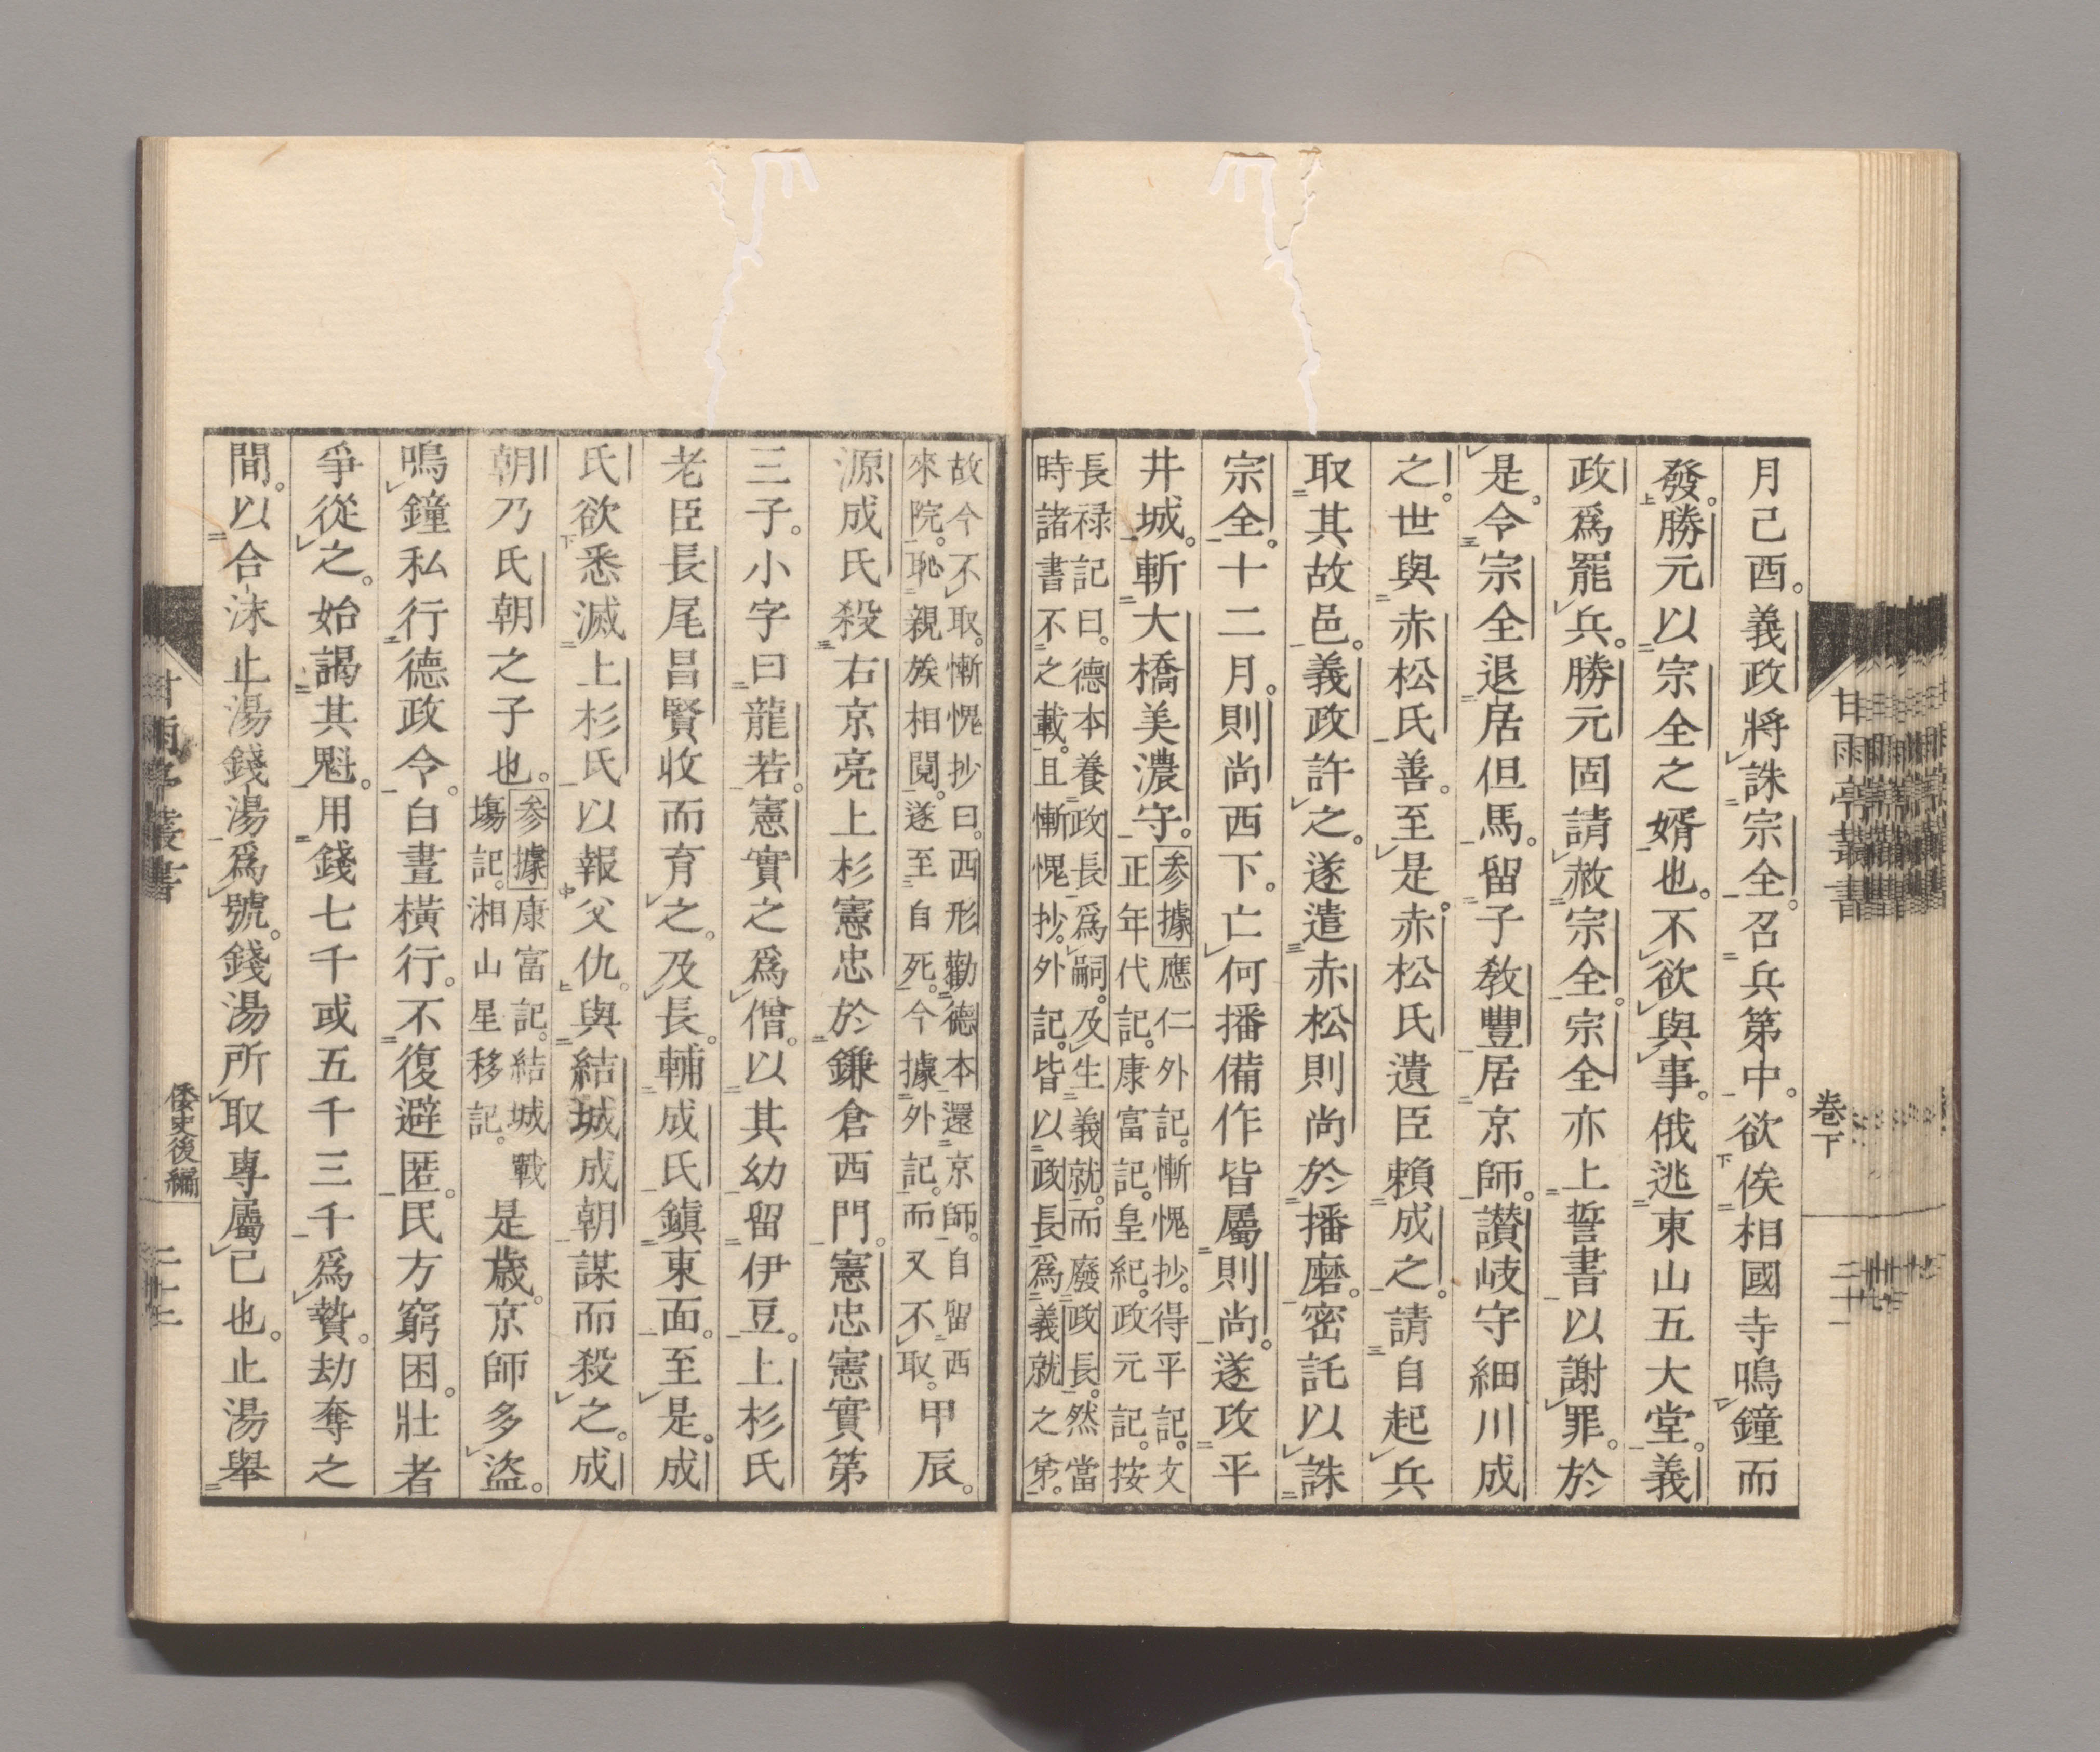 甘雨亭叢書
卷下
二十一
月己酉。義政將誅宗全。召兵第中。欲俟相國寺鳴鐘而
發。勝元以宗全之婿也。不欲與事。俄逃東山五大堂。義
政爲罷兵。勝元固請赦宗全。宗全亦上誓書以謝罪。於
是。令宗全退居但馬。留子敎豐居京師。讃岐守細川成
之。世與赤松氏善。至是赤松氏遺臣賴成之。請自起兵
取其故邑。義政許之。遂遣赤松則尚於播磨。密託以誅
宗全。十二月。則尚西下。亡何播備作皆屬則尚。遂攻平
井城。斬大橋美濃守。
参據應仁外記。慚愧抄。得平記。文
正年代記。康富記。皇紀。政元記。按
長禄記曰。德本養政長爲嗣。及生義就。而廢政長。然當
時諸書不之載。且慚愧抄。外記。皆以政長爲義就之第。
故今不取。慚愧抄曰。西形勸德本還京師。自留西
來院。恥親族相鬩。遂至自死。今據外記。而又不取。
甲辰。
源成氏殺右京亮上杉憲忠於鎌倉西門。憲忠憲實第
三子。小字曰龍若。憲實之爲僧。以其幼留伊豆。上杉氏
老臣長尾昌賢收而育之。及長。輔成氏鎭東面。至是。成
氏欲悉滅上杉氏以報父仇。與結城成朝謀而殺之。成
朝乃氏朝之子也。
参據康富記。結城戰
塲記。湘山星移記。
是歲。京師多盜。
鳴鐘私行德政令。白晝橫行。不復避匿。民方窮困。壯者
爭從之。始謁其魁。用錢七千或五千三千爲贄。劫奪之
間。以合沫止湯錢湯爲號。錢湯所取專屬己也。止湯舉
甘雨亭叢書
倭史後編
二十二